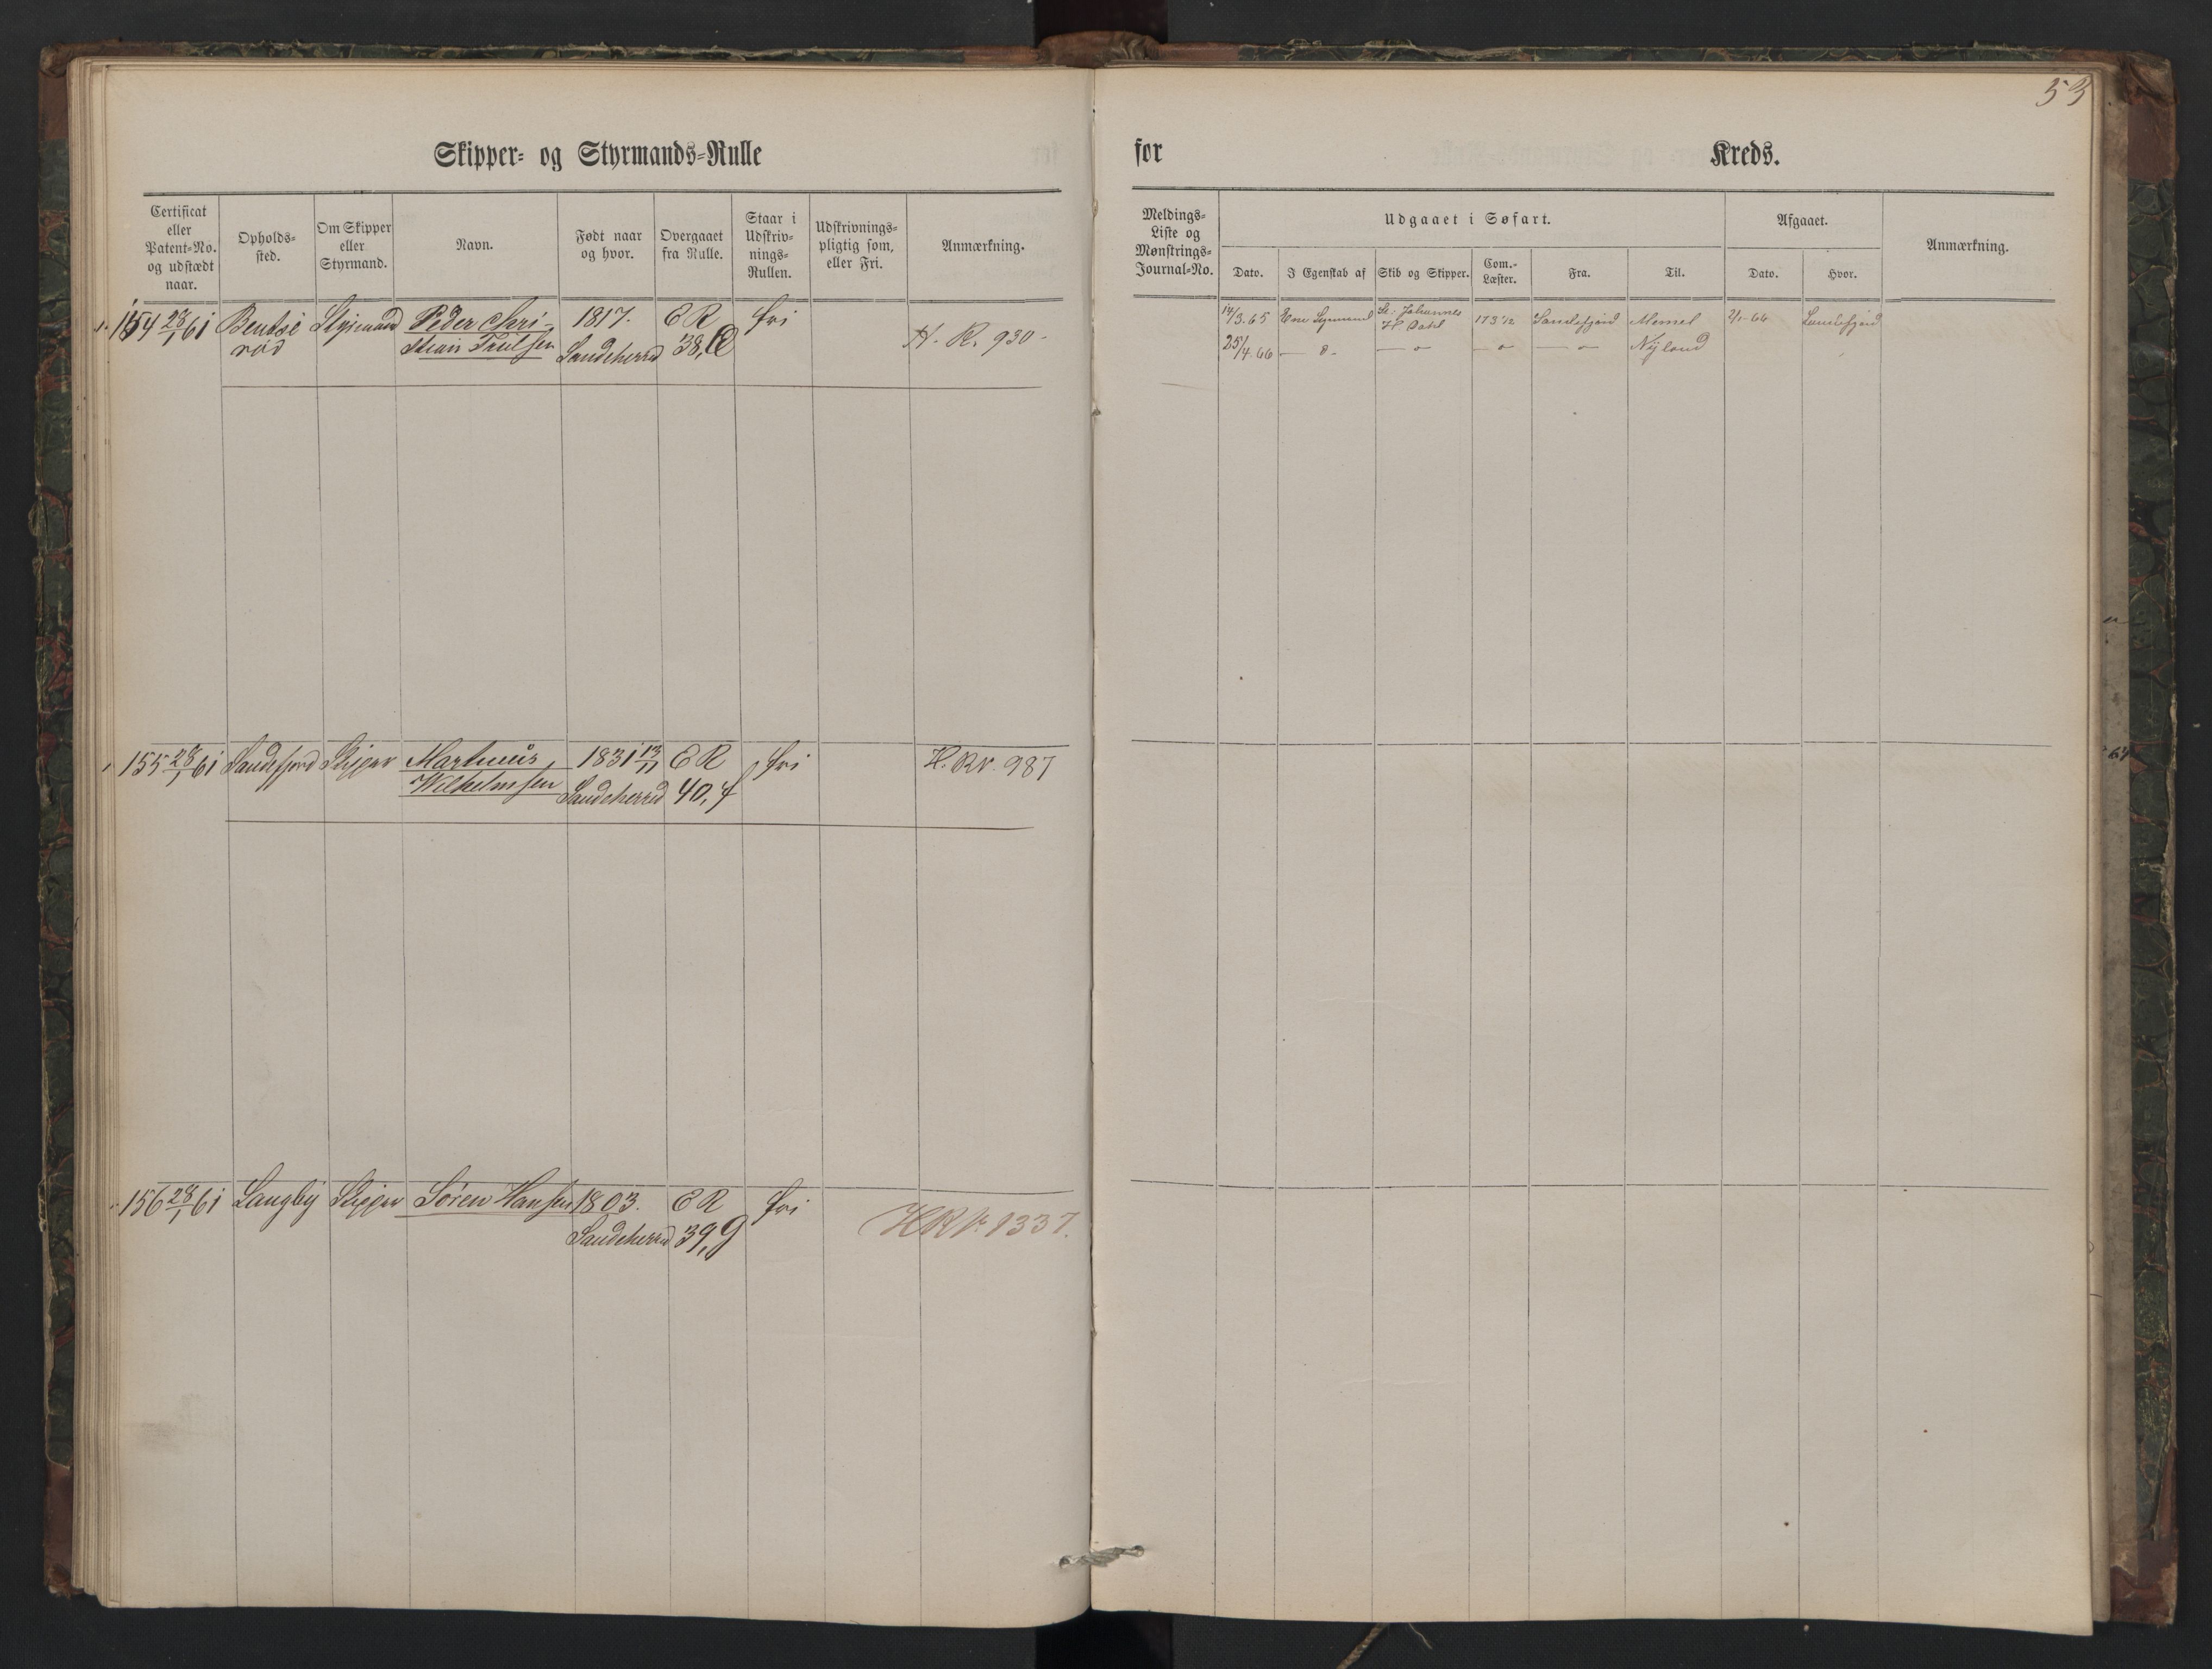 53
Skipper- og Styrmands-Rulle
for Kreds.
Certificat eller Patent-No. og udstædt naar.
Opholds-sted.
Om Skipper eller Styrmand.
Navn.
Født naar og hvor.
Overgaaet fra Rulle.
Staar i Udskriv-nings-Rullen.
Udskrivnings-pligtig som, eller Fri.
Anmærkning.
Meldings-Liste og Mønstrings-Journal-No.
Udgaaet i Søfart.
Dato.
I Egenskab af
Skib og Skipper.
Com.-Læster.
Fra.
Til.
Afgaaet.
Dato.
Hvor.
Anmærkning.
154 28/1 61 Bentse Styrmand Peder Chri- 1817. ER fri
rød stian Trulsen Sandeherred 38, H. R. 930
14/3.65 Johannes 173 1/2 Sandefjord Memel 2/1-66 Sandefjord
H. Dahl
25/4.66 — o — — o — — o — — o — Nyland
155 28/1 61 Sandefjord Skipper Martinius 1831 13/11 ER fri H. Rv. 987
Wilhelmsen Sandeherred 40, f
156 28/1 61 Langby Skipper Søren Hansen 1803. ER fri
Sandeherred 39, 9 HRv. 1337.